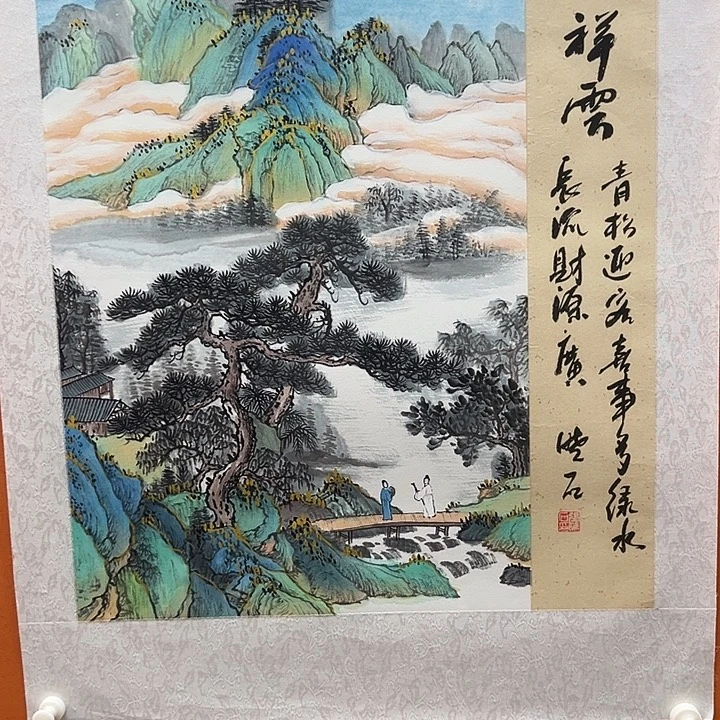 祥雲
青松迎客喜事多綠水
長流財源廣
石